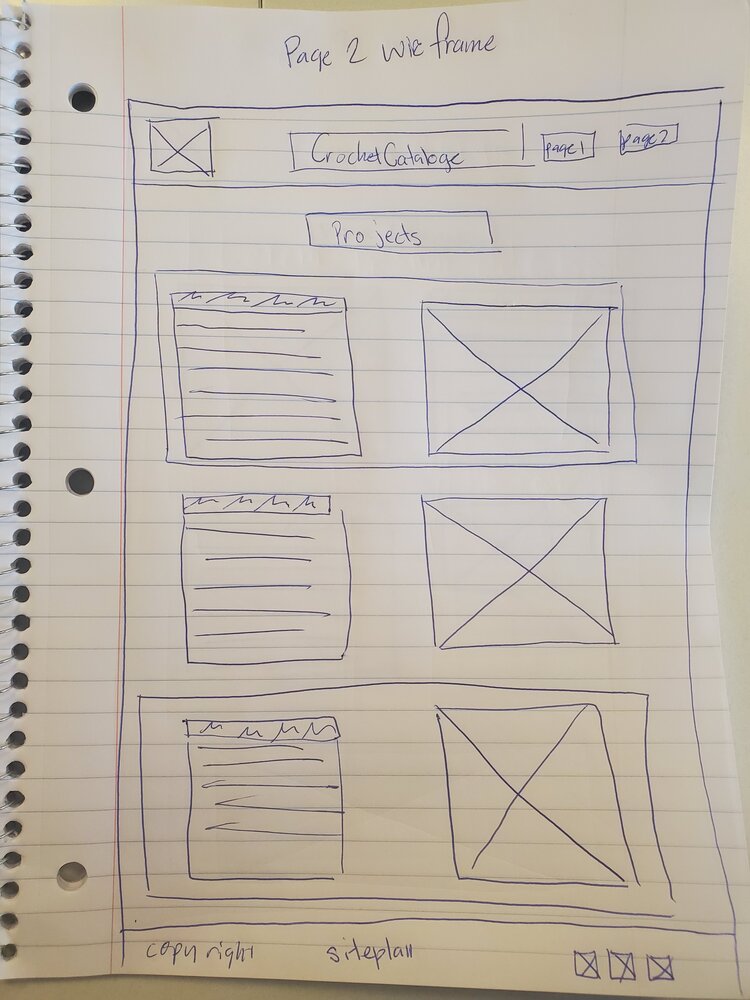 Page 2 wire frame
Crochet Cataloge page 1 page 2
Projects
copy right siteplan